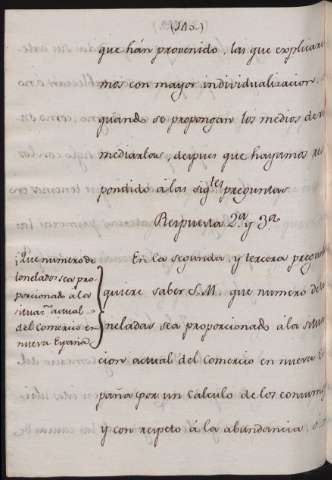 (315.)
que hán provenido, las que explicare
mos con mayor individualizacion,
quando se propongan los medios de re
mediarlas, despues que hayamos res
pondido á las sigtes preguntas.
Respuesta 2ª y 3ª
¿Que numero de
toneladas sea pro-
porcionado á la
situacn actual
del Comercio en
nueva España?
En la segunda, y tercera pregun
quiere saber S.M. que numero de to
neladas sea proporcionado á la situa
cion actual del Comercio en nueva Es
paña por un cálculo de los consum
y con respeto á la abundancia, ó